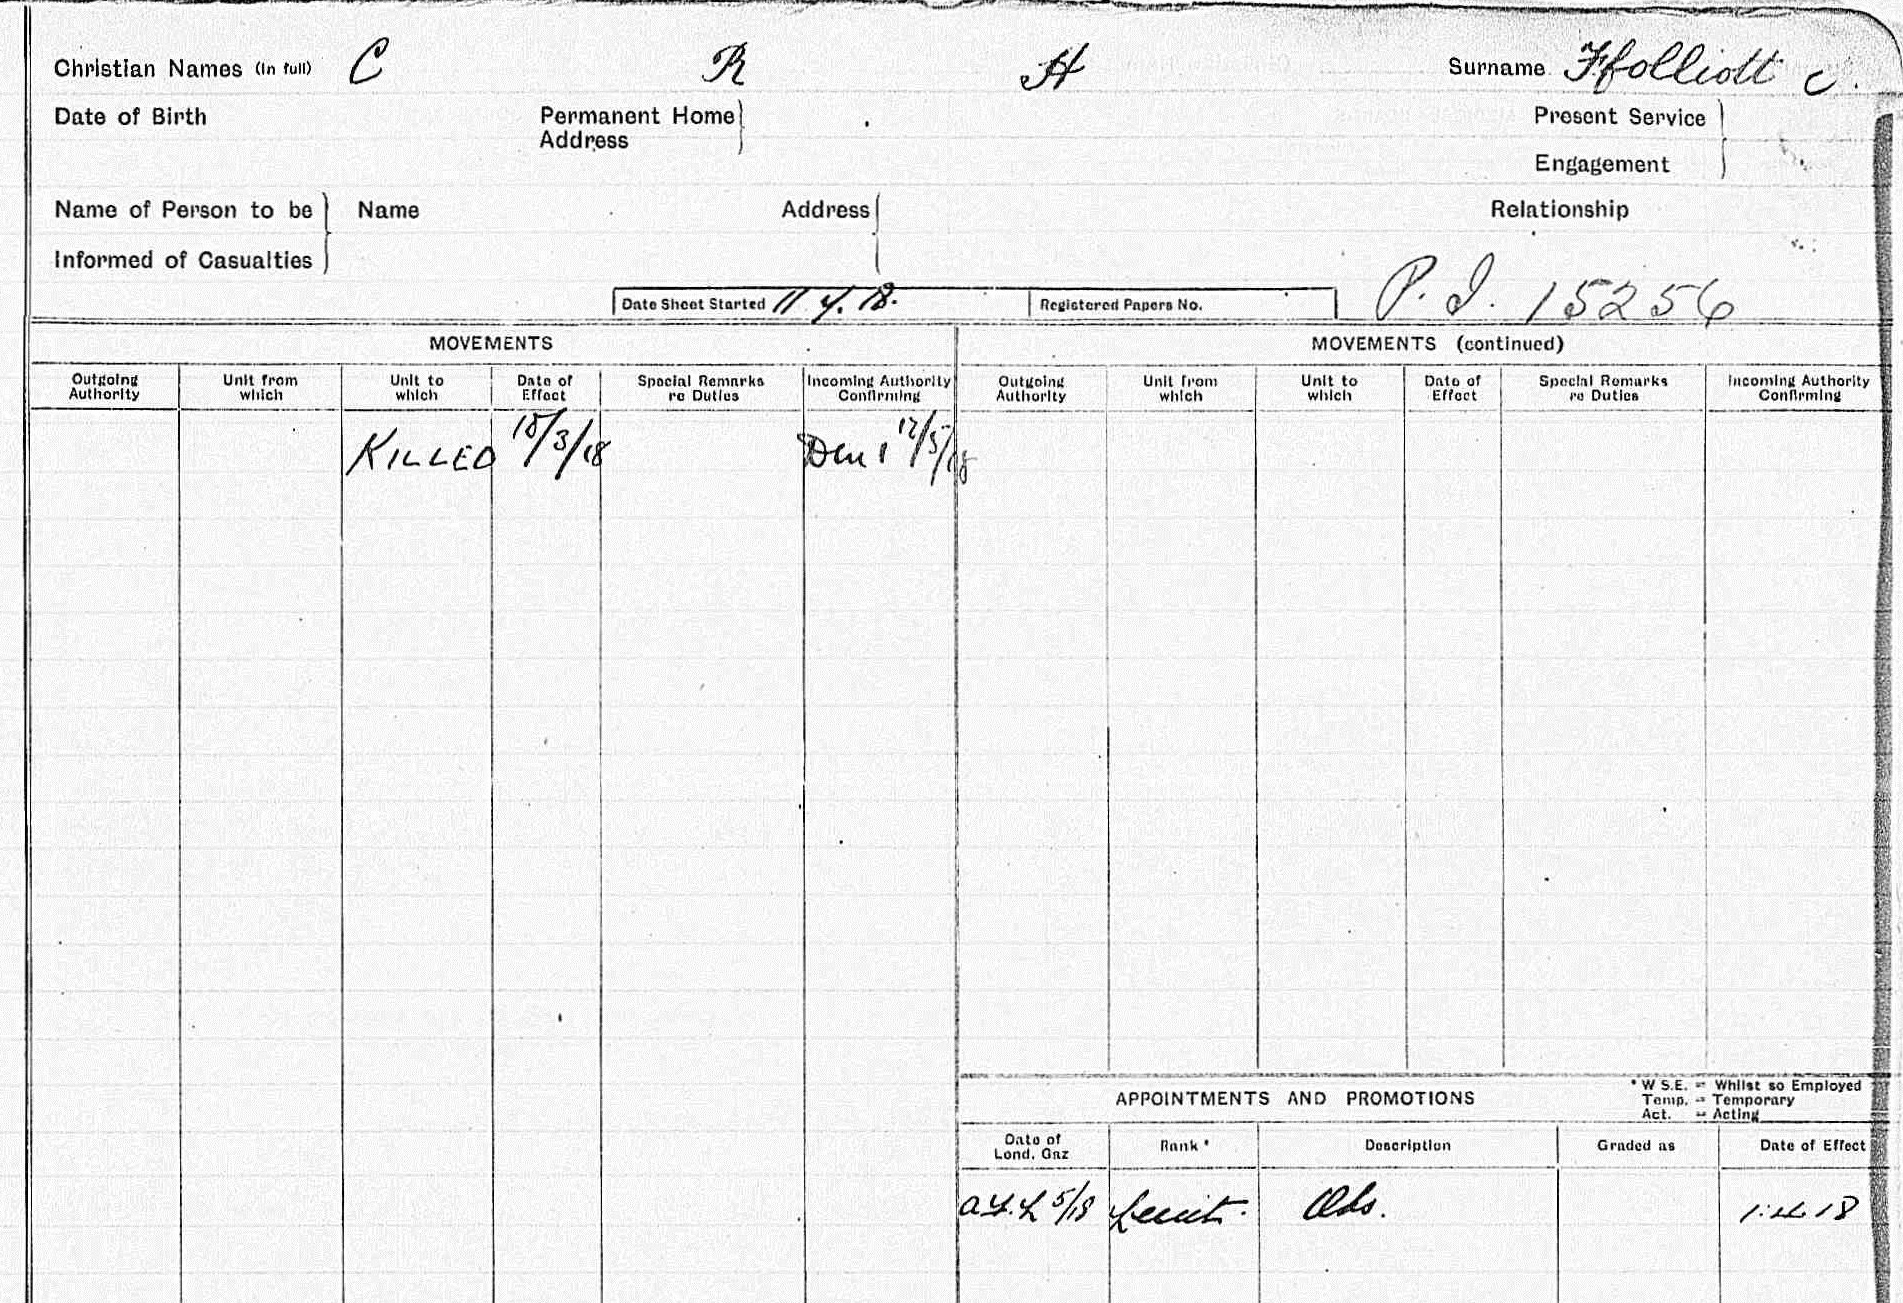 Christian Names (in full) C R H Surname Ffolliott C.
Date of Birth Permanent Home Address Present Service Engagement
Name of Person to be Informed of Casualties Name Address Relationship
Date Sheet Started 11.4.18. Registered Papers No. P.I. 15256
MOVEMENTS MOVEMENTS (continued)
Outgoing Authority Unit from which Unit to which Date of Effect Special Remarks re Duties Incoming Authority Confirming Outgoing Authority Unit from which Unit to which Date of Effect Special Remarks re Duties Incoming Authority Confirming
KILLED 18/3/18 12/5/18
APPOINTMENTS AND PROMOTIONS
* W S.E. = Whilst so Employed
Temp. = Temporary
Act. = Acting
Date of Lond. Gaz Rank * Description Graded as Date of Effect
5/18 Lieut. Obs. 1.4.18